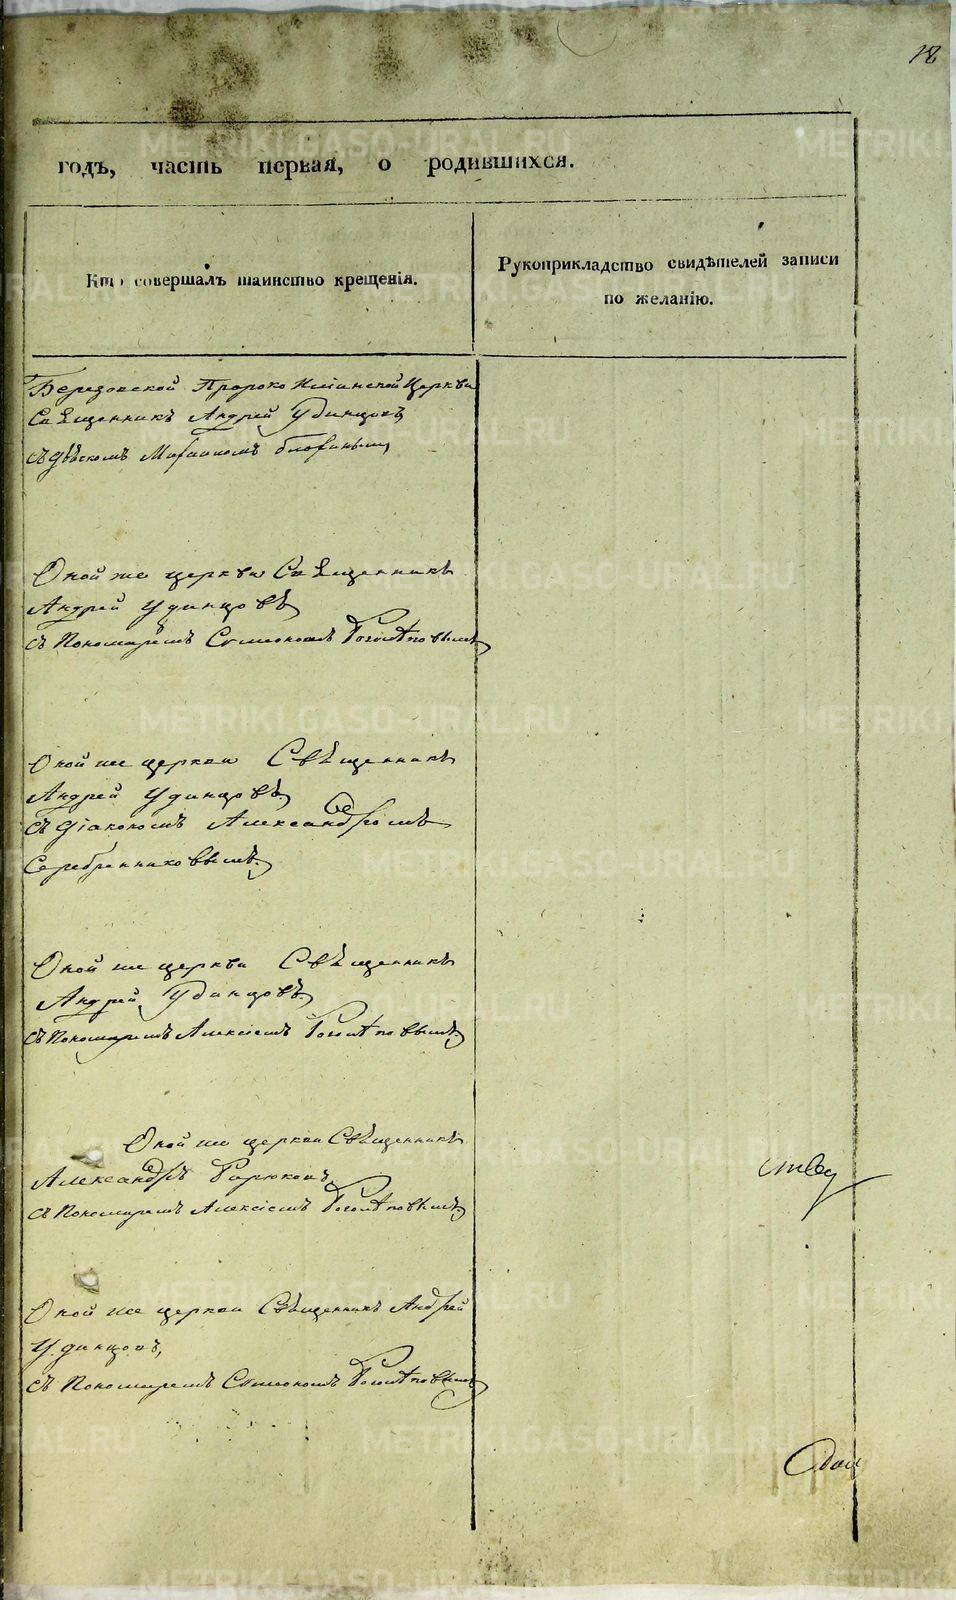 18
годъ, часть первая, о родившихся.
Кто совершалъ таинство крещенія.
Рукоприкладство свидѣтелей записи
по желанію.
Березовской Пророко Ильинской Церкви
Священникъ Андрей Удинцовъ
съ
Оной же церкви Священникъ
Андрей Удинцовъ
съ Пономаремъ Симеономъ
Оной же церкви Священникъ
Андрей Удинцовъ
съ Діакономъ Александромъ
Серебренниковымъ
Оной же церкви Священникъ
Андрей Удинцовъ
съ Пономаремъ Алексіемъ
Оной же церкви Священникъ
Александръ
съ Пономаремъ Алексіемъ
Оной же церкви Священникъ Андрей
Удинцовъ,
съ Пономаремъ Симеономъ
METRIKI.GASO-URAL.RU